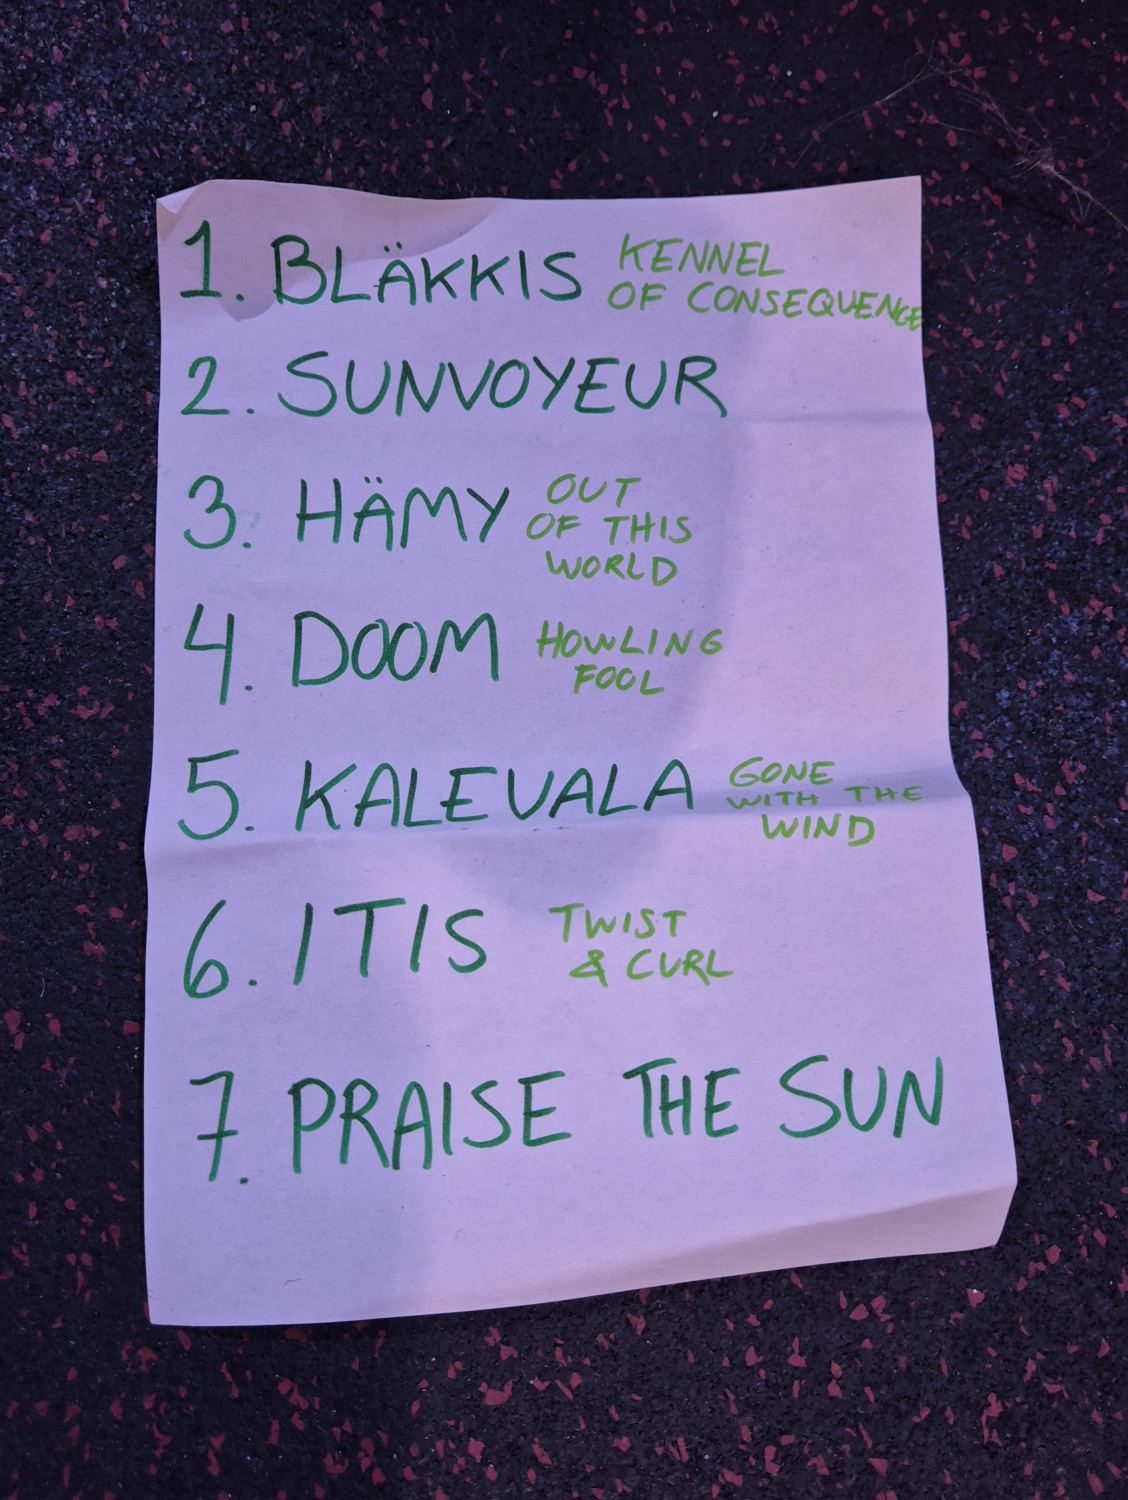 1. BLÄKKIS KENNEL
OF CONSEQUENCE
2. SUNVOYEUR
3. HÄMY OUT
OF THIS
WORLD
4. DOOM HOWLING
FOOL
5. KALEVALA GONE
WITH THE
WIND
6. ITIS TWIST
& CURL
7. PRAISE THE SUN